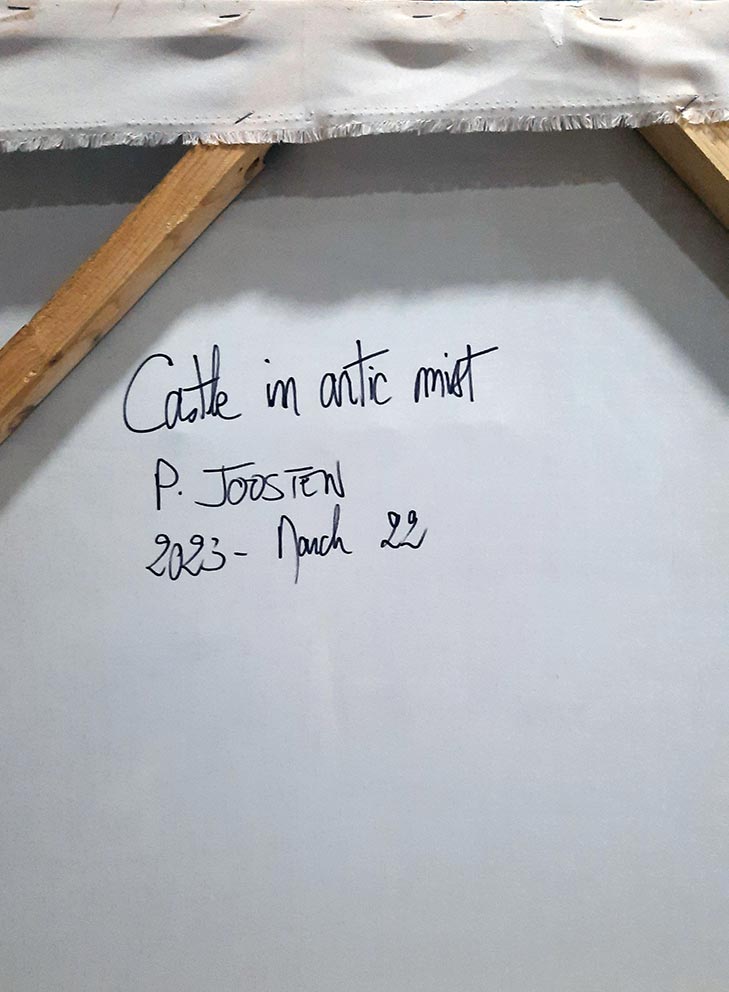 Castle in antic mist
P. JOOSTEN
2023 - March 22